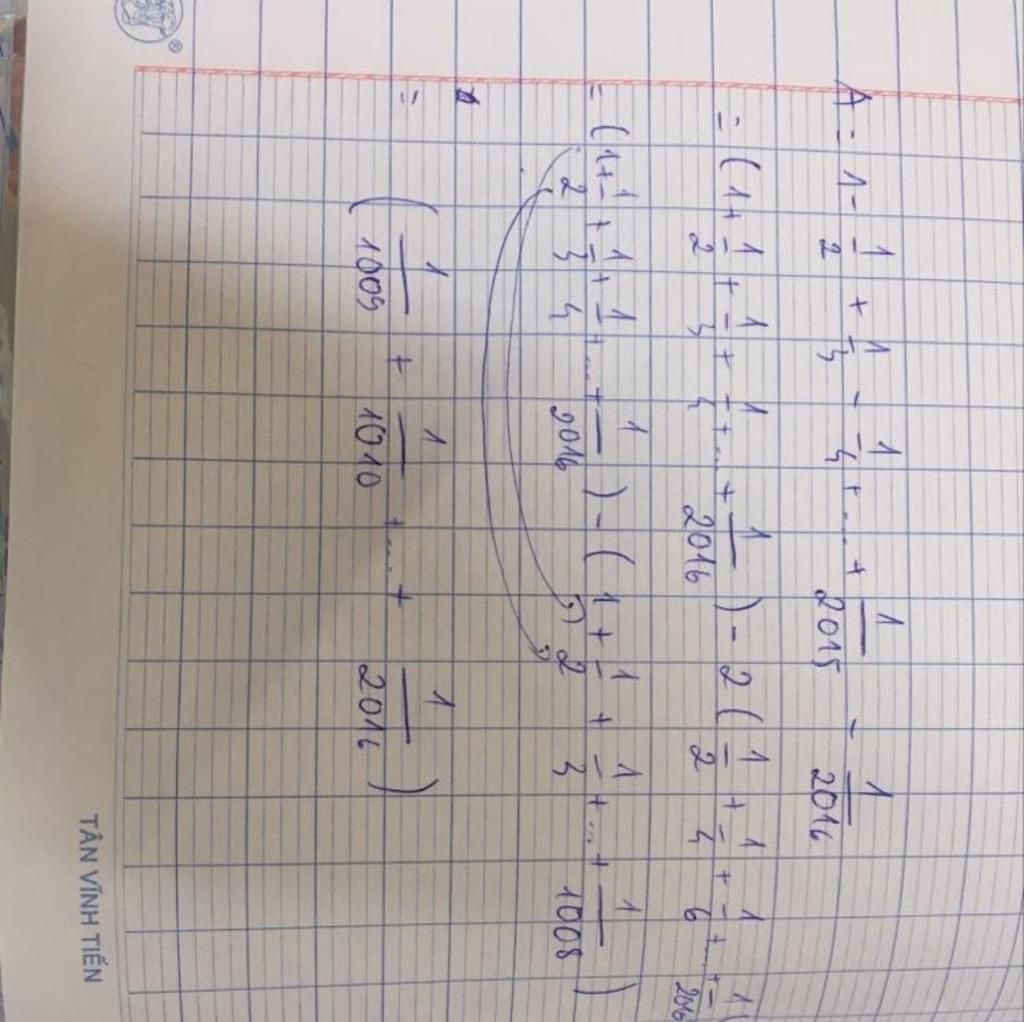 A = 1 - 1/2 + 1/3 - 1/4 + ... + 1/2015 - 1/2016
= (1 + 1/2 + 1/3 + 1/4 + ... + 1/2016) - 2(1/2 + 1/4 + 1/6 + ... + 1/2016)
= (1 + 1/2 + 1/3 + 1/4 + ... + 1/2016) - (1 + 1/2 + 1/3 + ... + 1/1008)
= (1/1009 + 1/1010 + ... + 1/2016)
TÂN VĨNH TIẾN
®